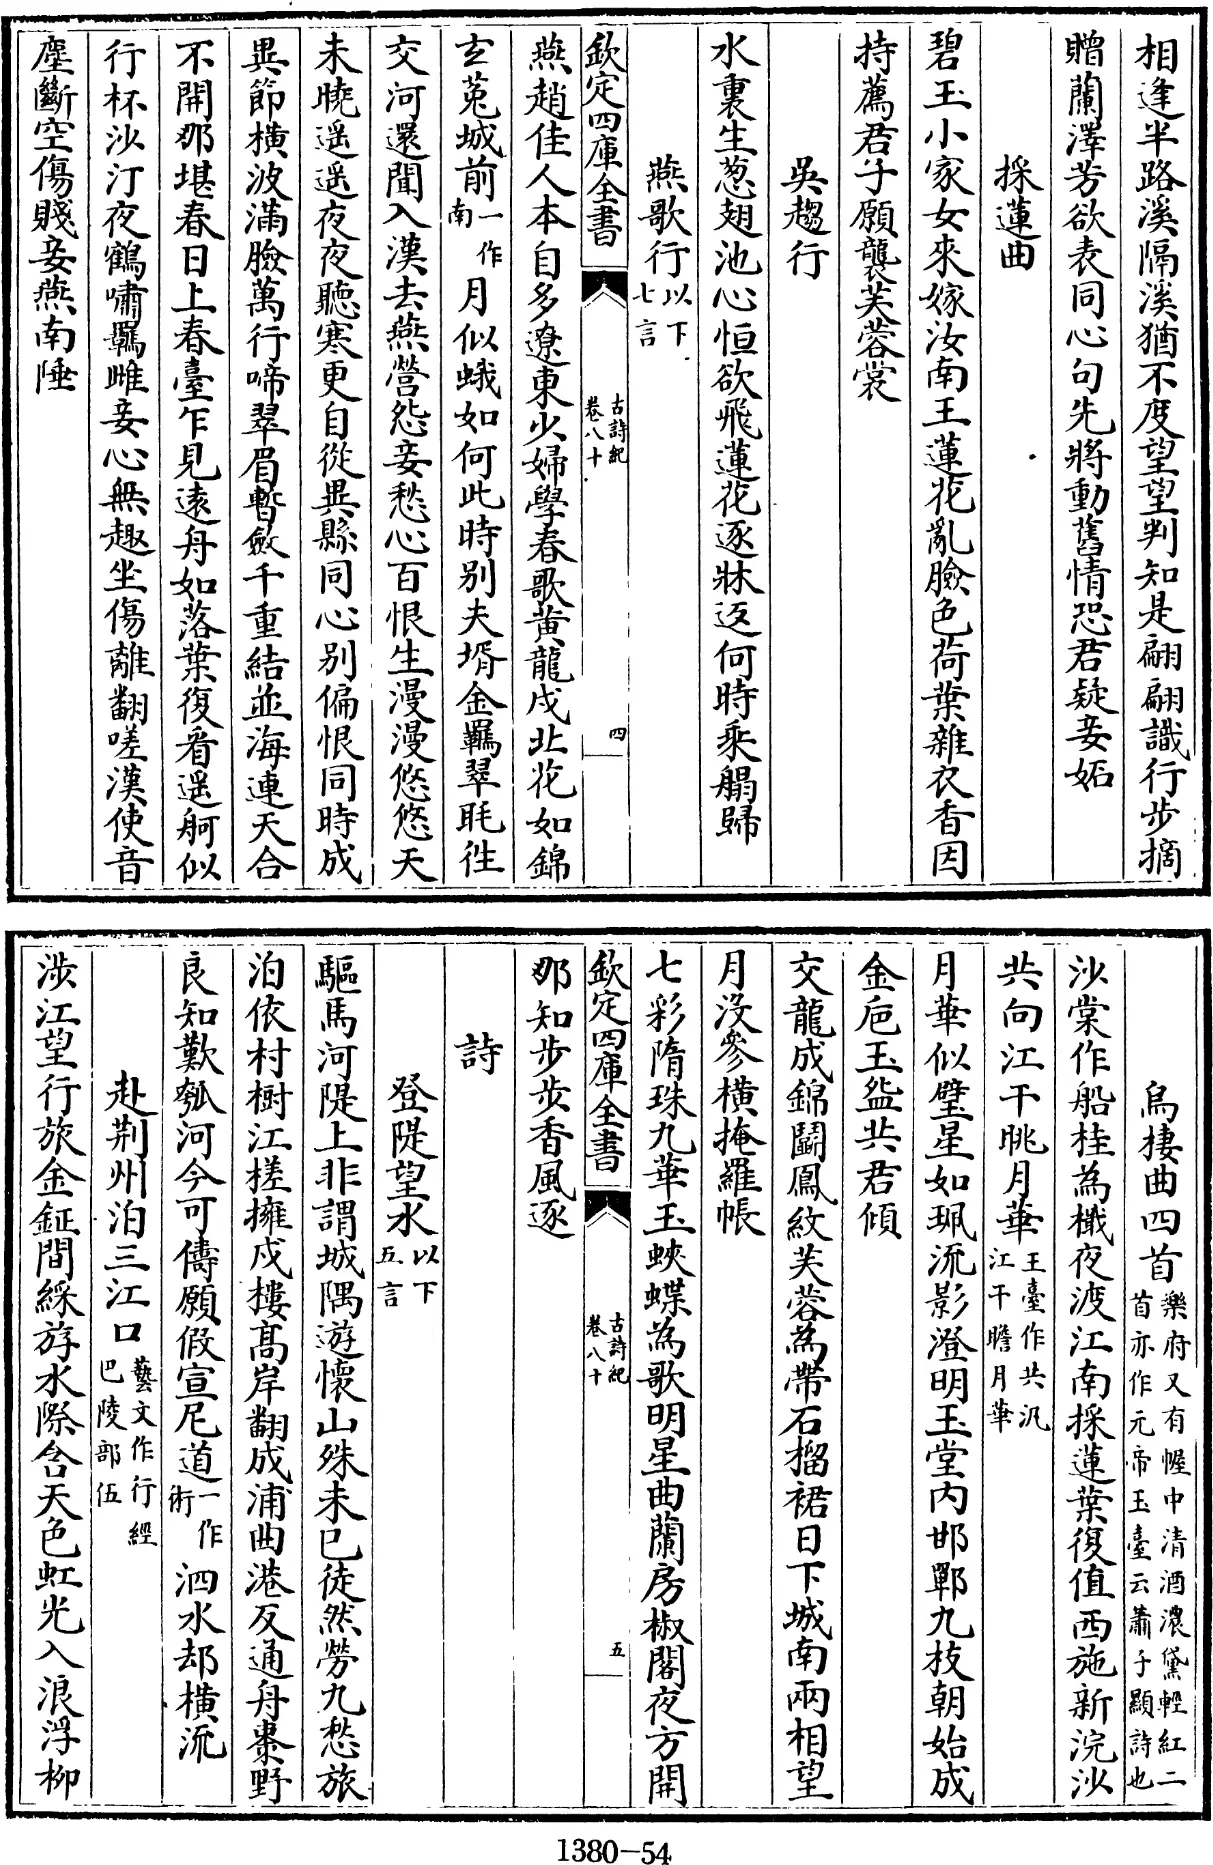 相逢半路溪隔溪猶不度望望判知是翩翩識行步摘
贈蘭澤芳欲表同心句先將動舊情恐君疑妾妬
採蓮曲
碧玉小家女來嫁汝南王蓮花亂臉色荷葉雜衣香因
持薦君子願襲芙蓉裳
吳趨行
水裏生葱翅池心恒欲飛蓮花逐牀返何時乘鷁歸
燕歌行以下七言
欽定四庫全書 古詩紀卷八十 四
燕趙佳人本自多遼東少婦學春歌黄龍戍北花如錦
玄菟城前一作南月似蛾如何此時别夫壻金羈翠眊徃
交河還聞入漢去燕營怨妾愁心百恨生漫漫悠悠天
未曉遥遥夜夜聽寒更自從異縣同心别偏恨同時成
異節横波滿臉萬行啼翠眉暫斂千重結並海連天合
不開那堪春日上春臺乍見遠舟如落葉復看遥舸似
行杯沙汀夜鶴嘯羈雌妾心無趣坐傷離翻嗟漢使音
塵斷空傷賤妾燕南陲
烏棲曲四首樂府又有幄中清酒濃黛輕紅二首亦作元帝玉臺云蕭子顯詩也
沙棠作船桂為檝夜渡江南採蓮葉復值西施新浣沙
共向江干眺月華玉臺作共汎江干瞻月華
月華似璧星如珮流影澄明玉堂内邯鄲九枝朝始成
金巵玉盌共君傾
交龍成錦鬬鳳紋芙蓉為帶石榴裙日下城南兩相望
月没參横掩羅帳
七彩隋珠九華玉蛺蝶為歌明星曲蘭房椒閣夜方開
欽定四庫全書 古詩紀卷八十 五
那知步步香風逐
詩
登隄望水以下五言
驅馬河隄上非謂城隅遊懷山殊未已徒然勞九愁旅
泊依村樹江槎擁戍樓髙岸翻成浦曲港反通舟橐野
良知歎瓠河今可儔願假宣尼道一作術泗水却横流
赴荆州泊三江口藝文作行經巴陵部伍
涉江望行旅金鉦間綵斿水際含天色虹光入浪浮柳
1380-54